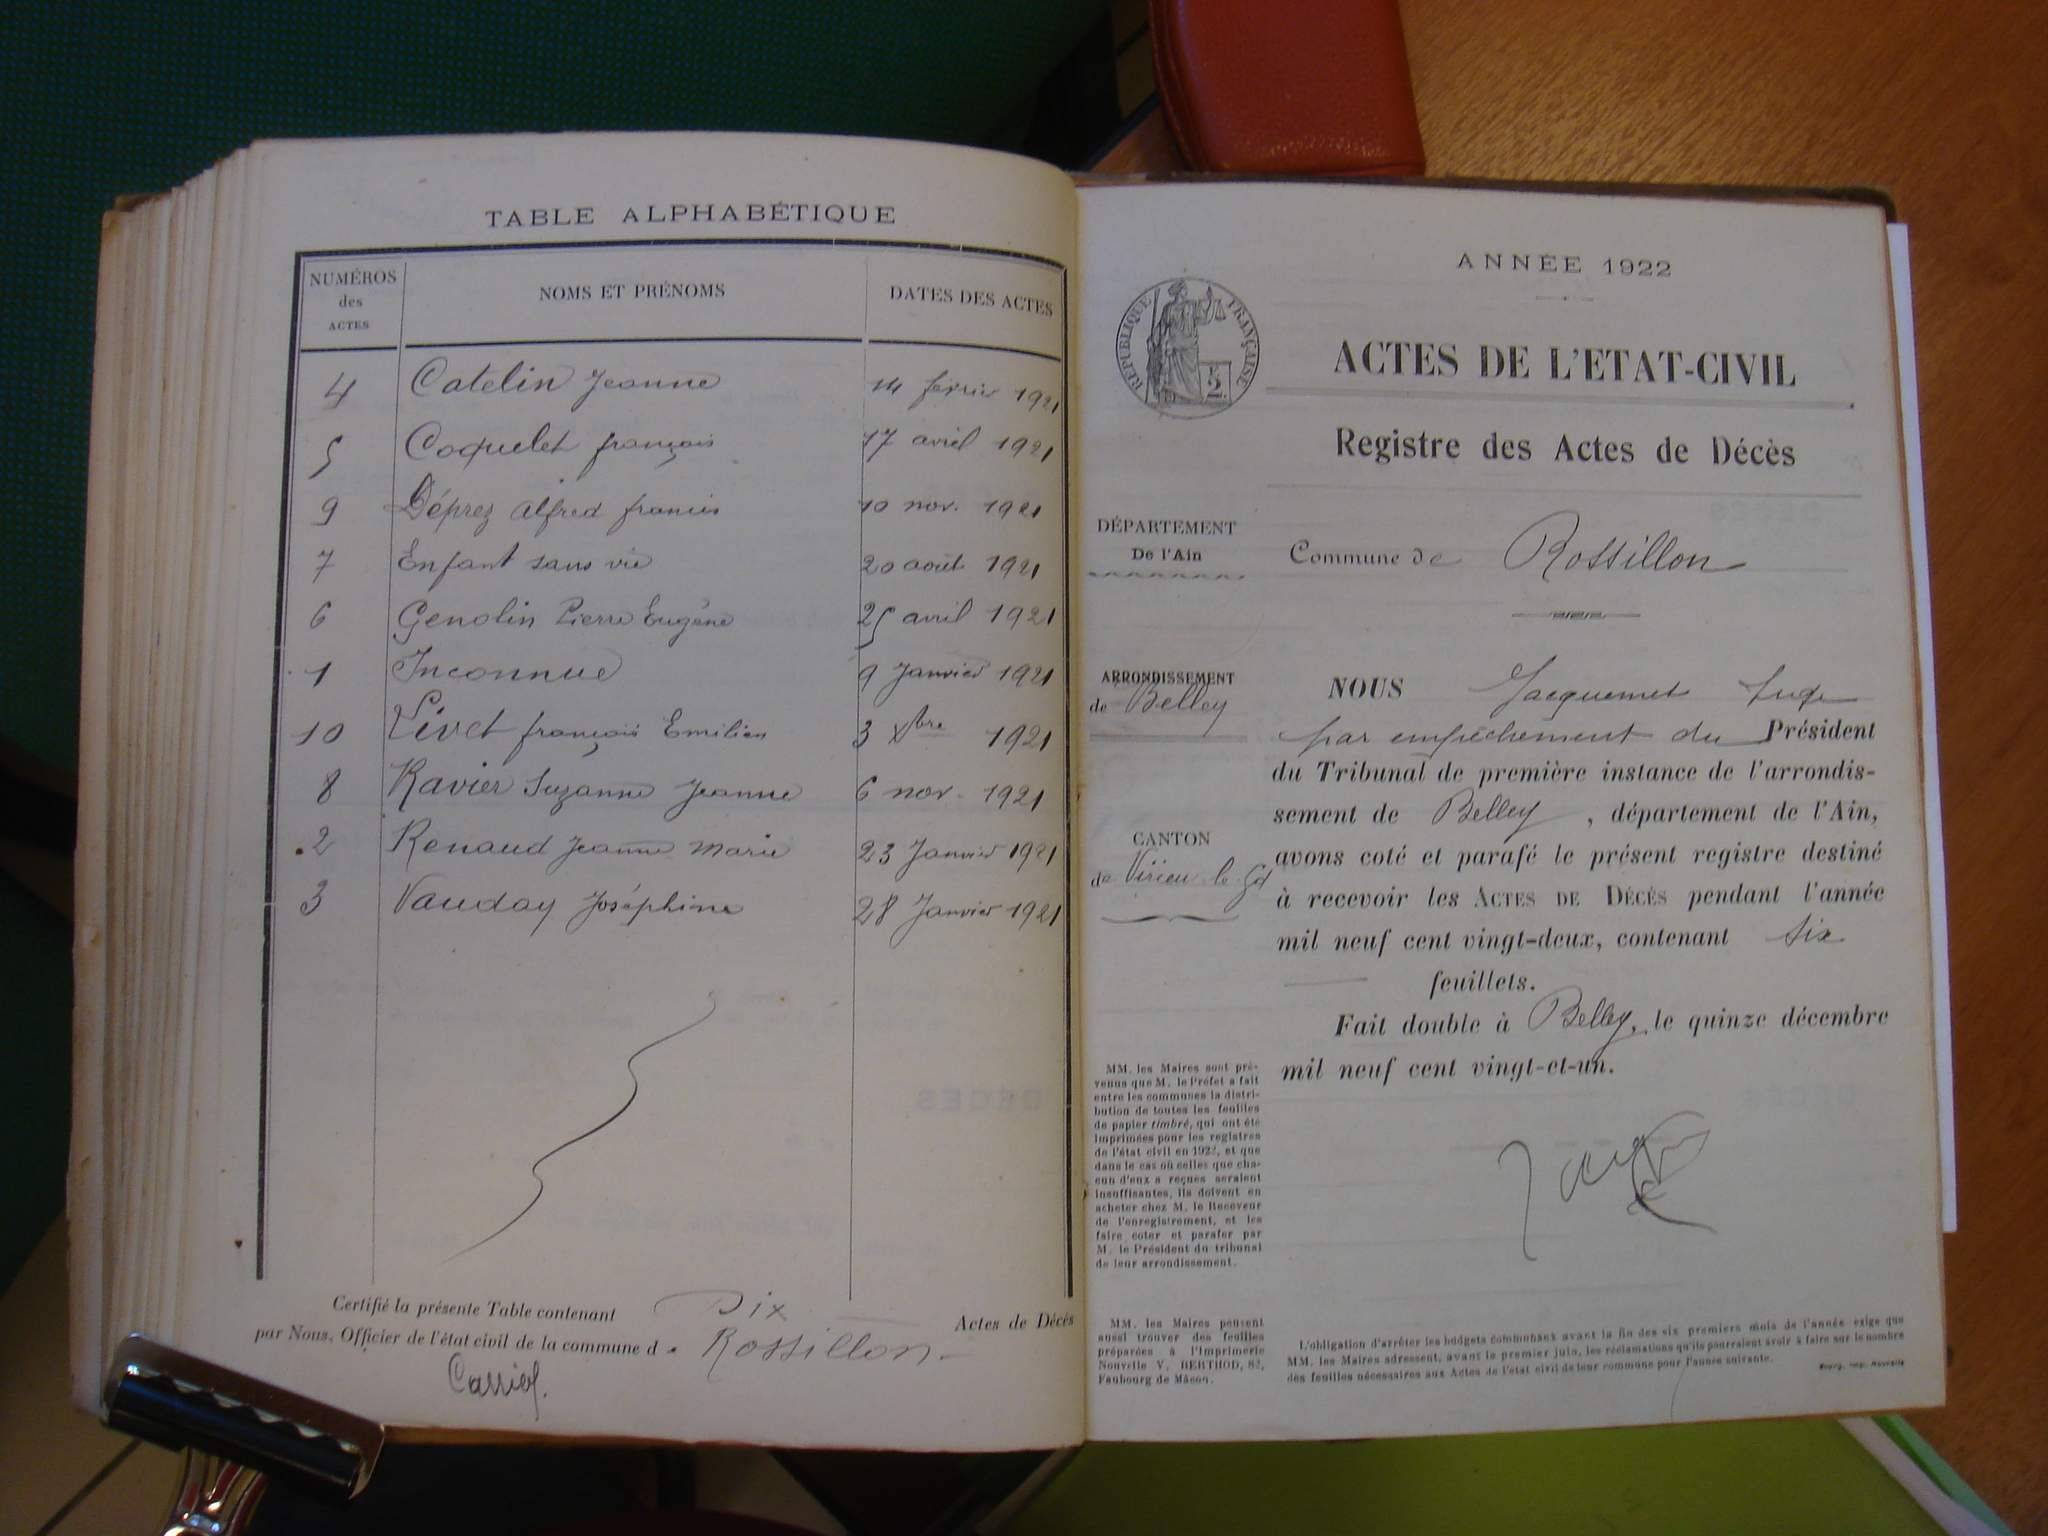 TABLE ALPHABÉTIQUE
NUMÉROS des ACTES NOMS ET PRÉNOMS DATES DES ACTES
4 Catelin Jeanne 14 février 1921
5 Coquelet françois 17 avril 1921
9 Déprez Alfred francis 10 nov. 1921
7 Enfant sans vie 20 août 1921
6 Genolin Pierre Eugène 25 avril 1921
1 Inconnue 9 Janvier 1921
10 Livet françois Emilien 3 Xbre 1921
8 Ravier Suzanne Jeanne 6 nov. 1921
2 Renaud Jeanne Marie 23 Janvier 1921
3 Vauday Joséphine 28 Janvier 1921
Certifié la présente Table contenant Dix Actes de Décès
par Nous, Officier de l'état civil de la commune d. Rossillon
ANNÉE 1922
RÉPUBLIQUE FRANÇAISE
ACTES DE L'ETAT-CIVIL
Registre des Actes de Décès
DÉPARTEMENT
De l'Ain
Commune de Rossillon
ARRONDISSEMENT
de Belley
CANTON
de Virieu le Gd
NOUS Jacquemet Juge
par empêchement du Président
du Tribunal de première instance de l'arrondis-
sement de Belley, département de l'Ain,
avons coté et parafé le présent registre destiné
à recevoir les ACTES DE DÉCÈS pendant l'année
mil neuf cent vingt-deux, contenant six
feuillets.
Fait double à Belley, le quinze décembre
mil neuf cent vingt-et-un.
MM. les Maires sont pré-
venus que M. le Préfet a fait
entre les communes la distri-
bution de toutes les feuilles
de papier timbré, qui ont été
imprimées pour les registres
de l'état civil en 1922, et que
dans le cas où celles que cha-
cun d'eux a reçues seraient
insuffisantes, ils doivent en
acheter chez M. le Receveur
de l'enregistrement, et les
faire coter et parafer par
M. le Président du tribunal
de leur arrondissement.
MM. les Maires peuvent
aussi trouver des feuilles
préparées à l'Imprimerie
Nouvelle V. BERTHOD, 82,
Faubourg de Mâcon.
L'obligation d'arrêter les budgets communaux avant la fin des six premiers mois de l'année exige que
MM. les Maires adressent, avant le premier juin, les réclamations qu'ils pourraient avoir à faire sur le nombre
des feuilles nécessaires aux Actes de l'état civil de leur commune pour l'année suivante.
Bourg, imp. Nouvelle